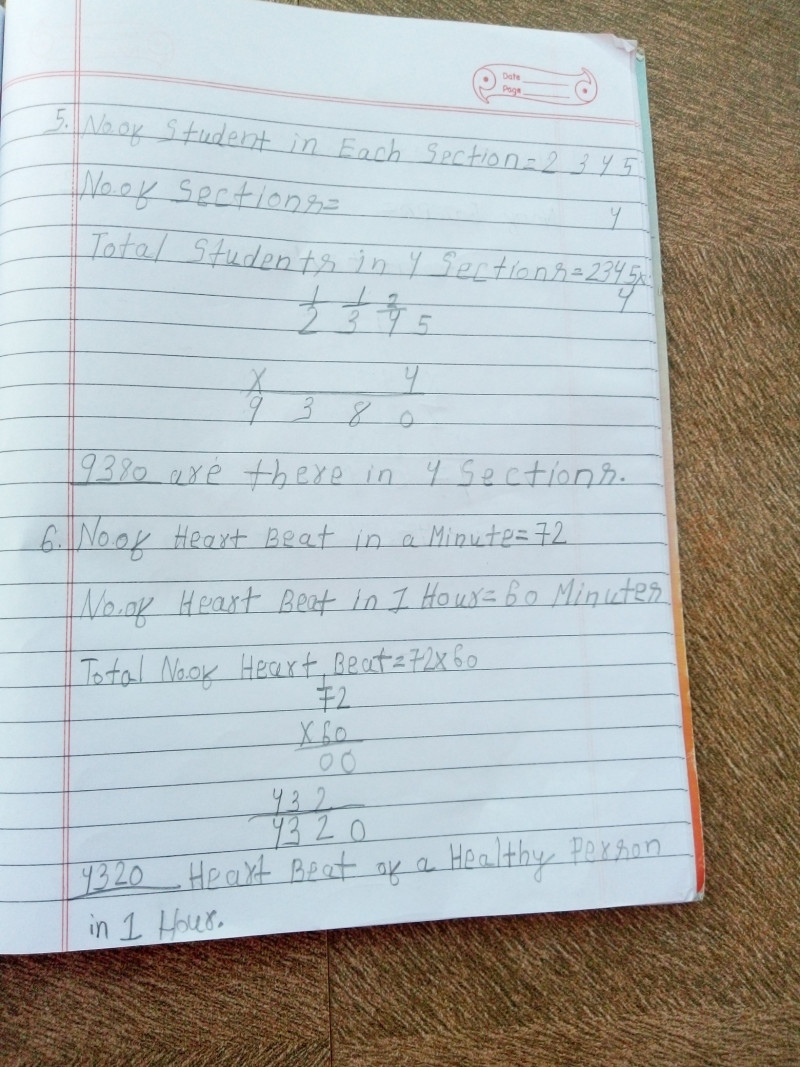 Date
Page
5. No.of Student in Each Section=2 3 4 5
No.of Sections=
4
Total Students in 4 Sections=2345x
4
1 1 2
2 3 4 5
x 4
9 3 8 0
9380 are there in 4 Sections.
6. No.of Heart Beat in a Minute=72
No.of Heart Beat in 1 Hour=60 Minutes
Total No.of Heart Beat=72x60
72
x60
00
432
4320
4320 Heart Beat of a Healthy Person
in 1 Hour.